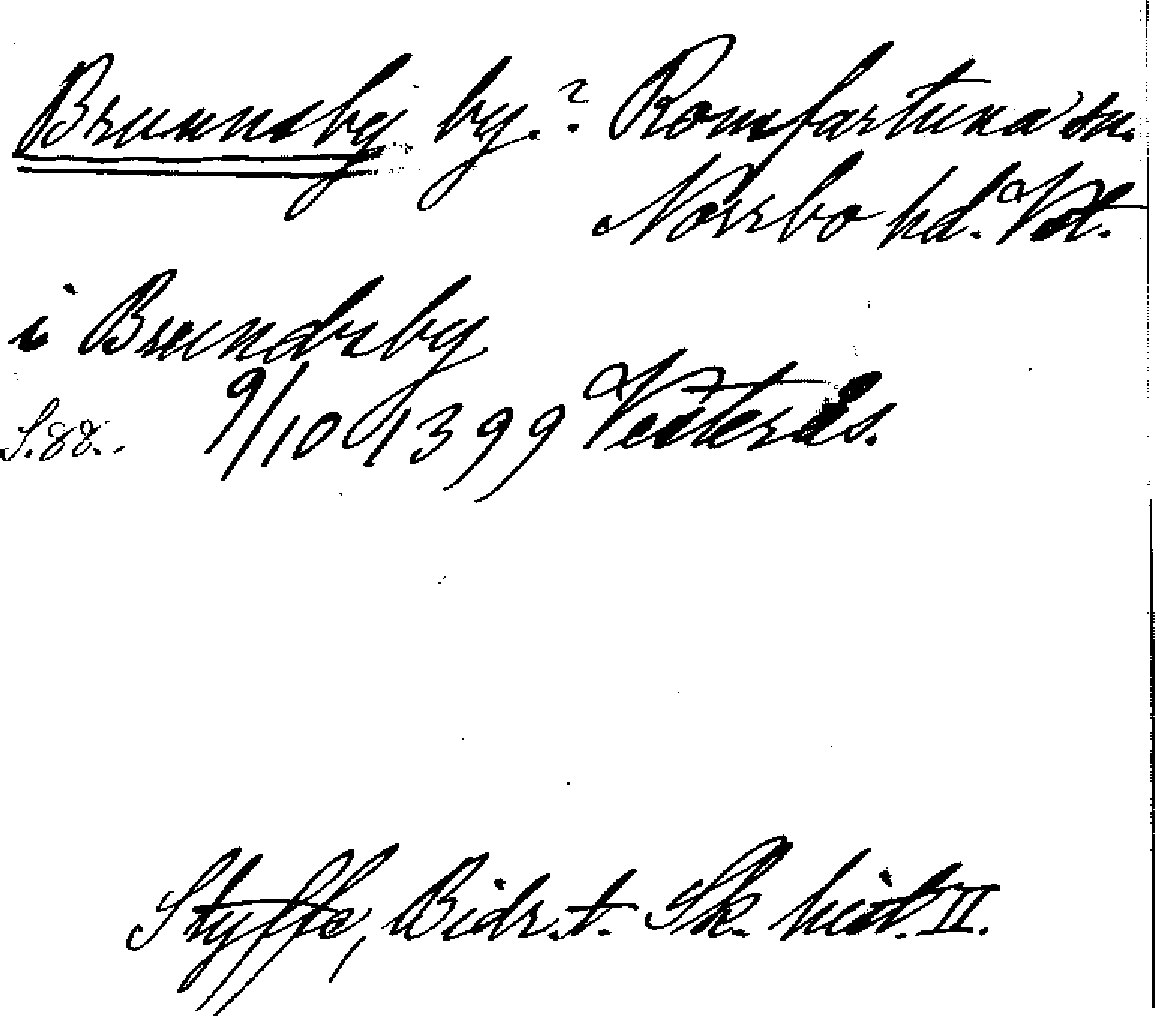 Brunnsby by.? Romfartuna sn.
Norrbo hd. Vstl.
i Brundzby
S.88. 9/10 1399 Vesterås.
Styffe, Bidr. t. Sk. hist. II.